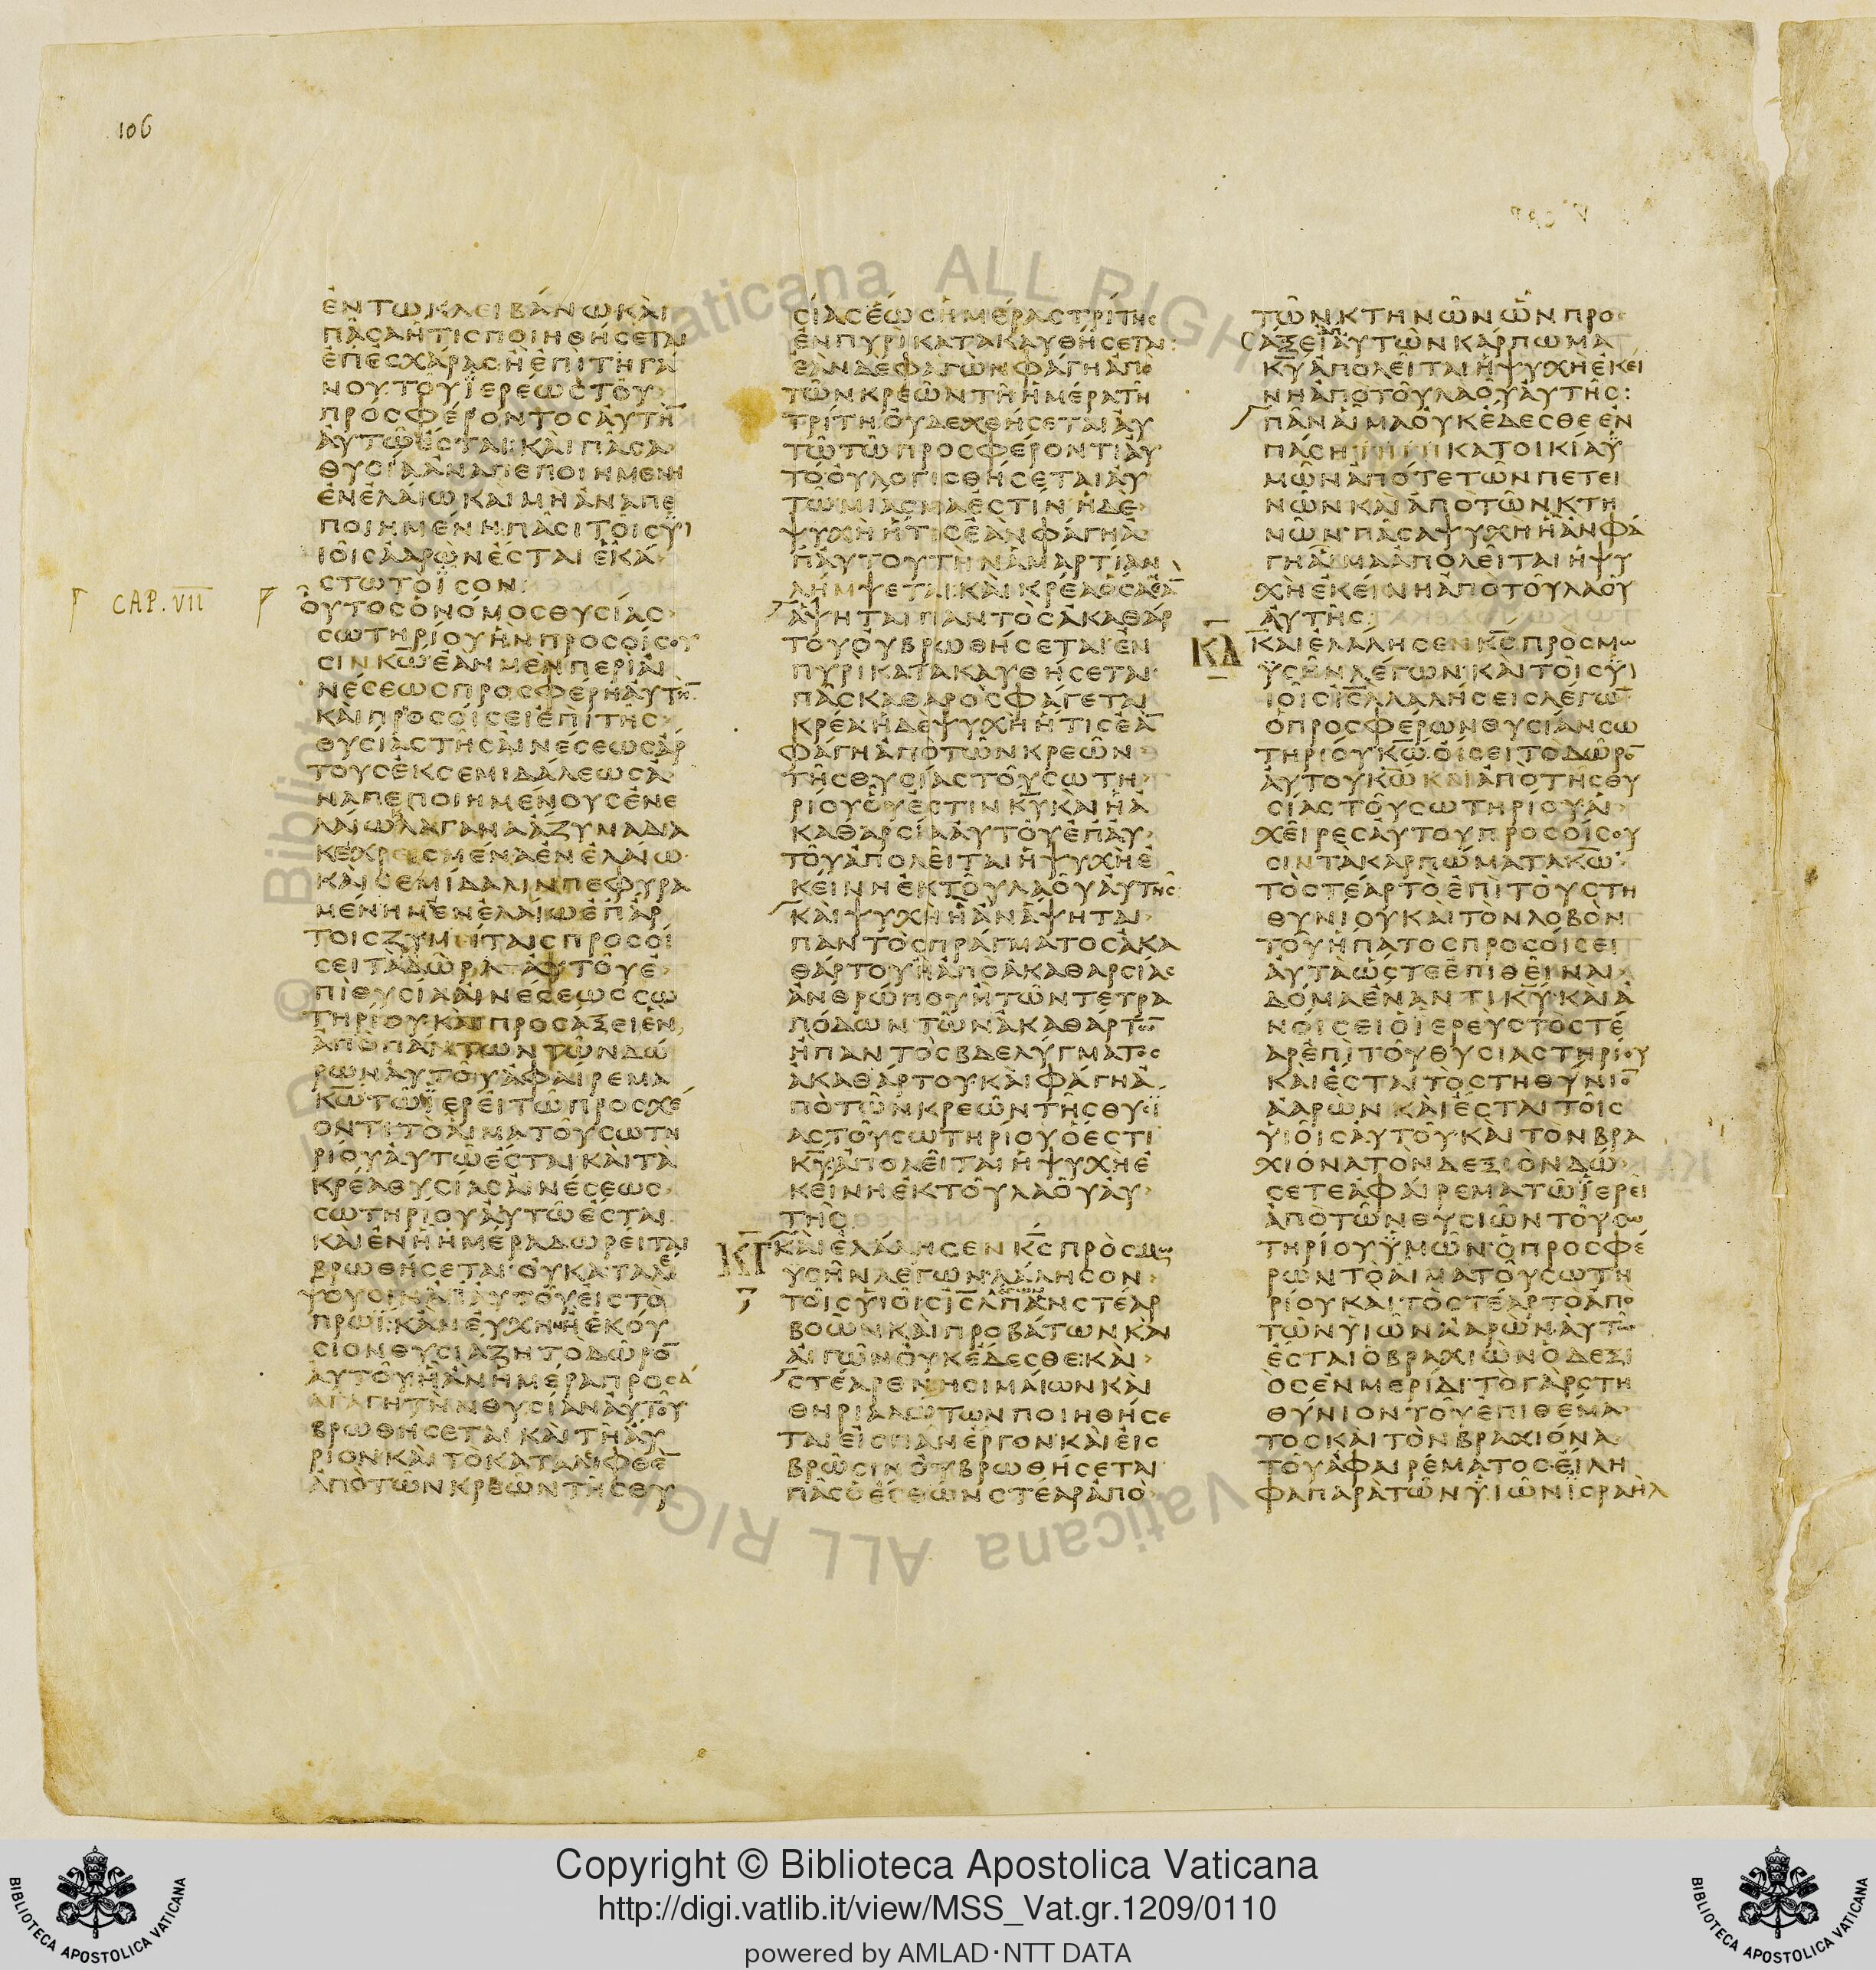 106
CAP. VII
ἐν τῶ κλειβάνω καὶ
πᾶσα ἥτις ποιηθήσεται
ἐπ ἐσχάρας ἢ ἐπὶ τηγά
νου τοῦ ϊερέως τοῦ
προσφέροντος αὐτὴ̅
αὐτῶ ἔσται· καὶ πᾶσα
θυσία ἀναπεποιημένη
ἐν ἐλαίω καὶ μὴ ἀναπε
ποιημένη πᾶσι τοῖς ϋἱ
οῖς ἀαρὼν ἔσται ἑκά
στω τὸ ἴσον
οὗτος ὁ νόμος θυσίας
σωτηρίου ἣν προσοίσου
σιν κ̅ω̅ ἐὰμ μὲν περὶ αἰ
νέσεως προσφέρη αὐτὴ̅
καὶ προσοίσει ἐπὶ τῆς
θυσίας τῆς αἰνέσεως ἄρ
τους ἐκ σεμιδάλεως ἀ
ναπεποιημένους ἐν ἐ
λαίω λάγανα ἄζυμα δια
κεχρεισμένα ἐν ἐλαίω
καὶ σεμίδαλιν πεφυρα
μένημ ἐν ἐλαίω ἐπ ἄρ
τοις ζυμείταις προσοί
σει τὰ δῶρα αὐτοῦ ἐ
πὶ θυσία αἰνέσεως σω
τηρίου· καὶ προσάξει ἓν
ἀπὸ πάντων τῶν δώ
ρων αὐτοῦ ἀφαίρεμα
κ̅ω̅ τῶ ϊερεῖ τῶ προσχέ
οντι τὸ αἷμα τοῦ σωτη
ρίου αὐτῶ ἔσται καὶ τὰ
κρέα θυσίας αἰνέσεως
σωτηρίου αὐτῶ ἔσται
καὶ ἐν ἧ ἡμέρα δωρεῖται
βρωθήσεται οὐ καταλεί
ψουσιν ἀπ αὐτοῦ εἰς τὸ
πρωΐ· κἂν εὐχὴ ἢ ἑκού
σιον θυσιάζη τὸ δῶρο̅
αὐτοῦ ἧ ἂν ἡμέρα προσα
γάγη τὴν θυσίαν αὐτοῦ
βρωθήσεται καὶ τῆ αὔ
ριον καὶ τὸ καταλιφθὲ̅
ἀπὸ τῶν κρεῶν τῆς θυ
σίας ἕως ἡμέρας τρίτης
ἐν πυρὶ κατακαυθήσεται
ἐὰν δὲ φαγὼν φάγη ἀπὸ
τῶν κρεῶν τῆ ἡμέρα τῆ
τρίτη οὐ δεχθήσεται αὐ
τῶ τῶ προσφέροντι αὐ
τό οὐ λογισθήσεται αὐ
τῶ μίασμά ἐστιν ἡ δὲ
ψυχὴ ἥτις ἐὰν φάγη ἀ
π αὐτοῦ τὴν ἁμαρτίαν
λήμψεται· καὶ κρέα ὅσα ἐὰ̅
ἅψηται παντὸς ἀκαθάρ
του οὐ βρωθήσεται ἐν
πυρὶ κατακαυθήσεται
πᾶς καθαρὸς φάγεται
κρέα ἡ δὲ ψυχὴ ἥτις ἐὰ̅
φάγη ἀπὸ τῶν κρεῶν
τῆς θυσίας τοῦ σωτη
ρίου ὅ ἐστιν κ̅υ̅ καὶ ἡ ἀ
καθαρσία αὐτοῦ ἐπ αὐ
τοῦ ἀπολεῖται ἡ ψυχὴ ἐ
κείνη ἐκ τοῦ λαοῦ αὐτῆς·
καὶ ψυχὴ ἣ ἂν ἅψηται
παντὸς πράγματος ἀκα
θάρτου ἢ ἀπὸ ἀκαθαρσίας
ἀνθρώπου ἢ τῶν τετρα
πόδων τῶν ἀκαθάρτω̅
ἢ παντὸς βδελύγματος
ἀκαθάρτου καὶ φάγη ἀ
πὸ τῶν κρεῶν τῆς θυσί
ας τοῦ σωτηρίου ὅ ἐστι
κ̅υ̅ ἀπολεῖται ἡ ψυχὴ ἐ
κείνη ἐκ τοῦ λαοῦ αὐ
τῆς
Κ̅Γ̅ καὶ ἐλάλησεν κ̅ς̅ πρὸς μω
ϋσῆν λέγων λάλησον
τοῖς υἱοῖς ι̅σ̅λ̅ λέγων πᾶν στέαρ
βοῶν καὶ προβάτων καὶ
αἰγῶν οὐκ ἔδεσθε· καὶ
στέαρ θνησιμαίων καὶ
θηριαλώτων ποιηθήσε
ται εἰς πᾶν ἔργον καὶ εἰς
βρῶσιν οὐ βρωθήσεται
πᾶς ὁ ἔσθων στέαρ ἀπὸ
τῶν κτηνῶν ὧν προσ
άξει ἀπ αὐτῶν κάρπωμα
κ̅υ̅ ἀπολεῖται ἡ ψυχὴ ἐκεί
νη ἀπὸ τοῦ λαοῦ αὐτῆς:
πᾶν αἷμα οὐκ ἔδεσθε ἐν
πάση τῆ κατοικία ὑ
μῶν ἀπό τε τῶν πετει
νῶν καὶ ἀπὸ τῶν κτη
νῶν πᾶσα ψυχὴ ἣ ἂν φά
γη αἷμα ἀπολεῖται ἡ ψυ
χὴ ἐκείνη ἀπὸ τοῦ λαοῦ
αὐτῆς
Κ̅Δ̅ καὶ ἐλάλησεν κ̅ς̅ πρὸς μω
ϋσῆν λέγων καὶ τοῖς υἱ
οῖς ι̅σ̅λ̅ λαλήσεις λέγω̅
ὁ προσφέρων θυσίαν σω
τηρίου κ̅ω̅ οἴσει τὸ δῶρο̅
αὐτοῦ κ̅ω̅ καὶ ἀπὸ τῆς θυ
σίας τοῦ σωτηρίου αἱ
χεῖρες αὐτοῦ προσοίσου
σιν τὰ καρπώματα κ̅ω̅
τὸ στέαρ τὸ ἐπὶ τοῦ στη
θυνίου καὶ τὸν λοβὸν
τοῦ ἥπατος προσοίσει
αὐτὰ ὥστε ἐπιθεῖναι
δόμα ἔναντι κ̅υ̅ καὶ ἀ
νοίσει ὁ ϊερεὺς τὸ στέ
αρ ἐπὶ τοῦ θυσιαστηρίου
καὶ ἔσται τὸ στηθύνιο̅
ἀαρὼν καὶ ἔσται τοῖς
υἱοῖς αὐτοῦ καὶ τὸν βρα
χίονα τὸν δεξιὸν δώ
σετε ἀφαίρεμα τῶ ϊερεῖ
ἀπὸ τῶν θυσιῶν τοῦ σω
τηρίου ὑμῶν ὁ προσφέ
ρων τὸ αἷμα τοῦ σωτη
ρίου καὶ τὸ στέαρ τὸ ἀπὸ
τῶν υἱῶν ἀαρὼν αὐτῶ
ἔσται ὁ βραχίων ὁ δεξι
ὸς ἐν μερίδι τὸ γὰρ στη
θύνιον τοῦ ἐπιθέμα
τος καὶ τὸν βραχίονα
τοῦ ἀφαιρέματος εἴλη
φα παρὰ τῶν υἱῶν ἰσραὴλ
Copyright © Biblioteca Apostolica Vaticana
http://digi.vatlib.it/view/MSS_Vat.gr.1209/0110
powered by AMLAD·NTT DATA
BIBLIOTECA APOSTOLICA VATICANA
BIBLIOTECA APOSTOLICA VATICANA